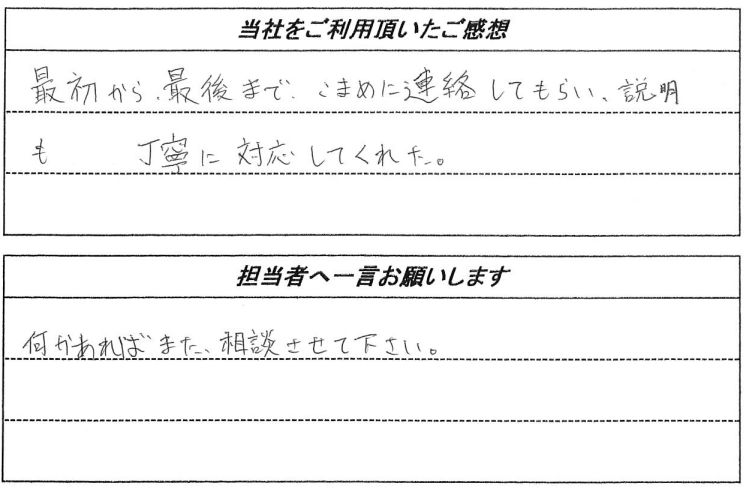 当社をご利用頂いたご感想
最初から、最後まで、こまめに連絡してもらい、説明
も　丁寧に対応してくれた。
担当者へ一言お願いします
何かあればまた、相談させて下さい。